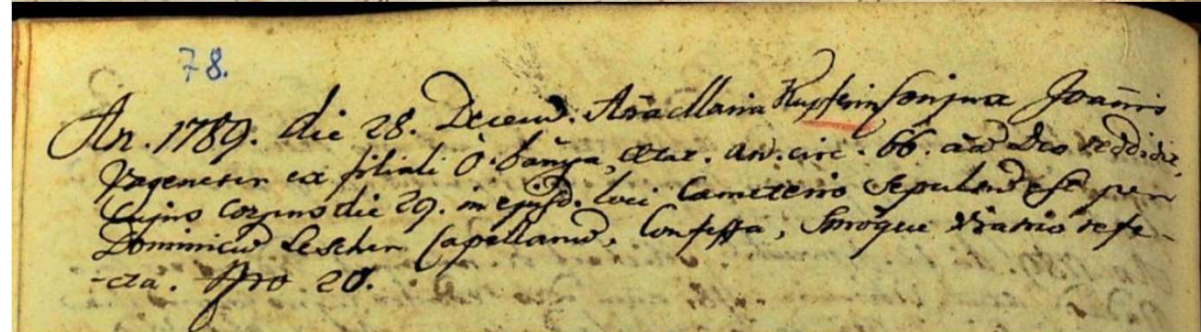 78.
An. 1789. die 28. Decem̄. Aña Maria Kupferin Conjux Joañis
ex filiali O. Bánya, Ætat. añ. circ. 66. aña Deo reddidit,
Cujus Corpus die 29. in ejusd. loci Cameterio Sepultum est per
Dominicū Lescher Capellanū, Confessa, Smoque Viatico refe-
-cta. Nro 20.